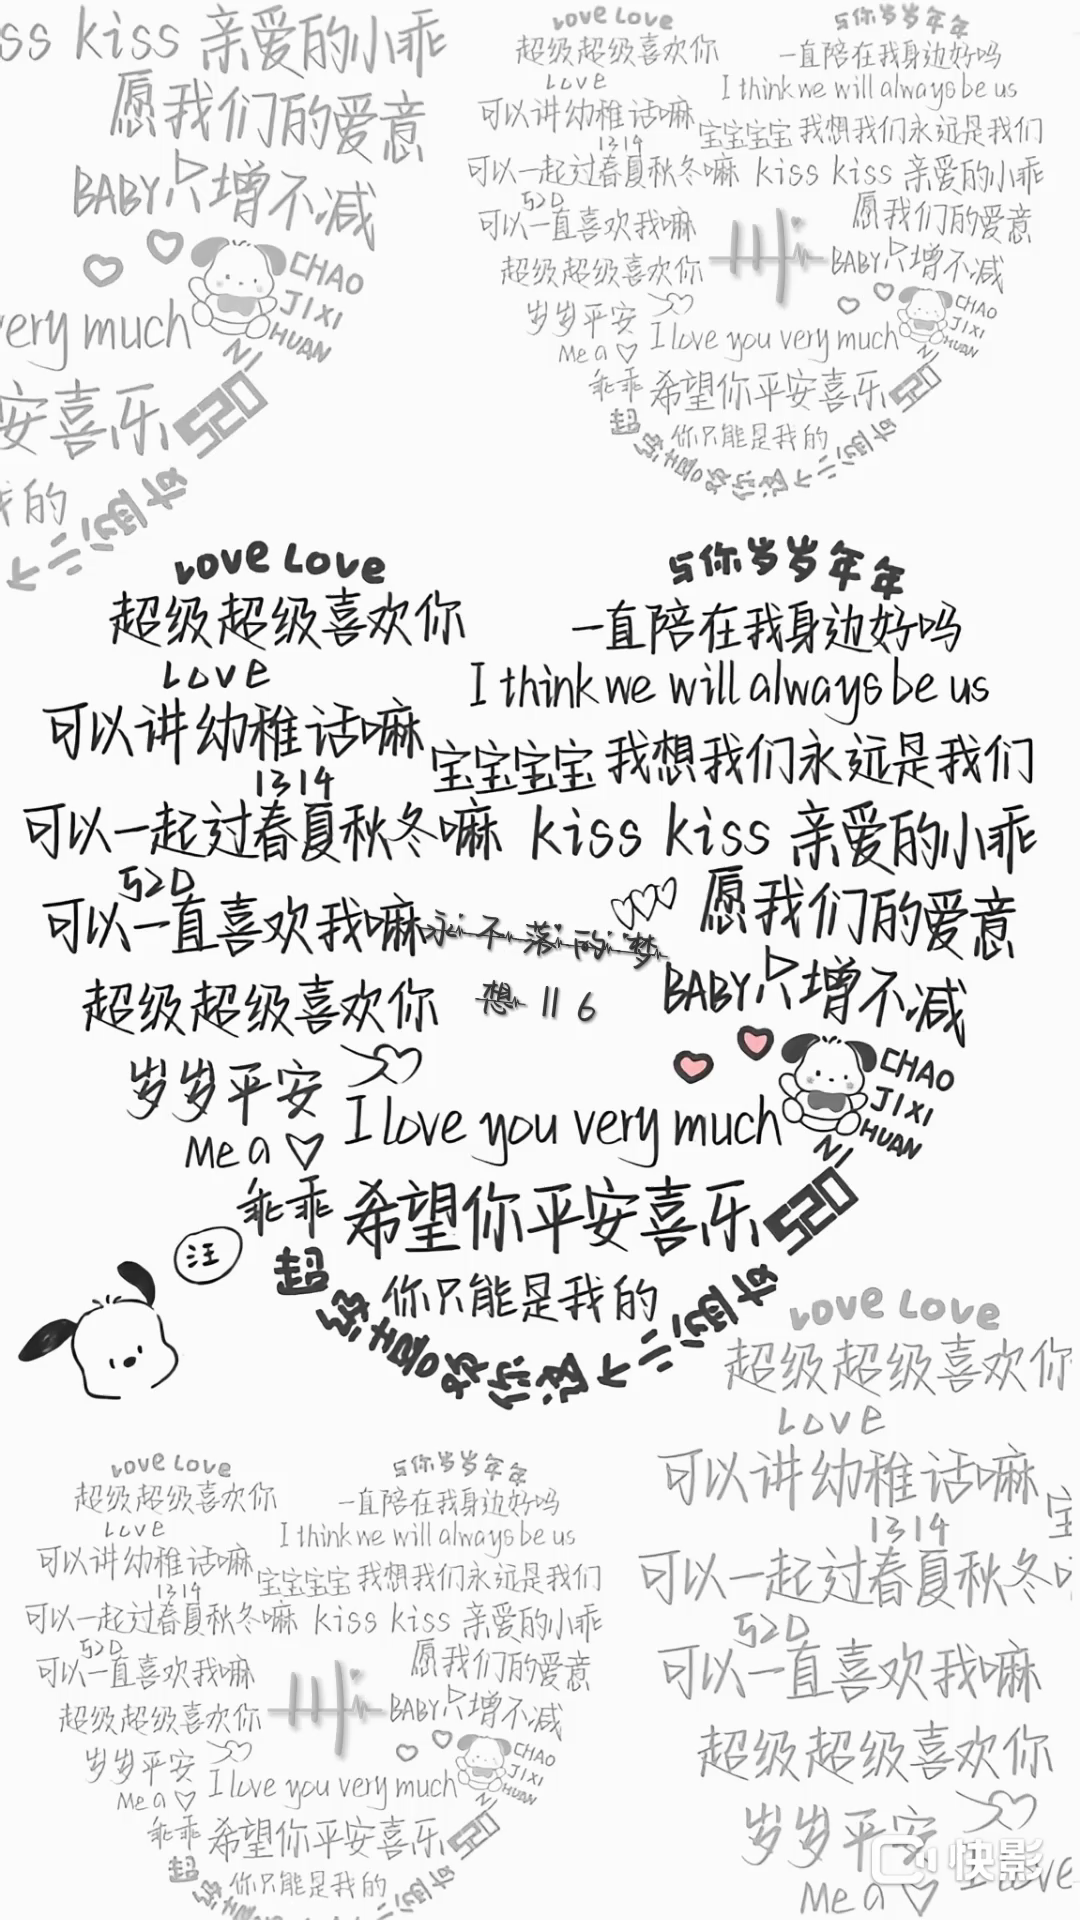 ss kiss 亲爱的小乖
愿我们的爱意
BABY只增不减
CHAO
JIXI
HUAN
NI
very much
安喜乐 520
我的
个二心阅于
Love Love
与你岁岁年年
超级超级喜欢你
一直陪在我身边好吗
Love
I think we will always be us
可以讲幼稚话嘛
宝宝宝宝 我想我们永远是我们
1314
可以一起过春夏秋冬嘛 kiss kiss 亲爱的小乖
520
可以一直喜欢我嘛
愿我们的爱意
超级超级喜欢你
BABY只增不减
岁岁平安
CHAO
JIXI
HUAN
NI
I love you very much
Me a
乖乖 希望你平安喜乐 520
你只能是我的
Love Love
与你岁岁年年
超级超级喜欢你
一直陪在我身边好吗
Love
I think we will always be us
可以讲幼稚话嘛
宝宝宝宝 我想我们永远是我们
1314
可以一起过春夏秋冬嘛 kiss kiss 亲爱的小乖
520
可以一直喜欢我嘛
愿我们的爱意
永不落的梦
想116
BABY只增不减
超级超级喜欢你
CHAO
JIXI
HUAN
NI
岁岁平安
I love you very much
Me a
乖乖 希望你平安喜乐 520
汪
你只能是我的
超级喜欢你这个
Love Love
超级超级喜欢你
Love
可以讲幼稚话嘛
宝
1314
可以一起过春夏秋冬
520
可以一直喜欢我嘛
超级超级喜欢你
岁岁平安
I love
Me a
Love Love
与你岁岁年年
超级超级喜欢你
一直陪在我身边好吗
Love
I think we will always be us
可以讲幼稚话嘛
宝宝宝宝 我想我们永远是我们
1314
可以一起过春夏秋冬嘛 kiss kiss 亲爱的小乖
520
可以一直喜欢我嘛
愿我们的爱意
超级超级喜欢你
BABY只增不减
岁岁平安
CHAO
JIXI
HUAN
I love you very much
Me a
乖乖 希望你平安喜乐 520
你只能是我的
快影